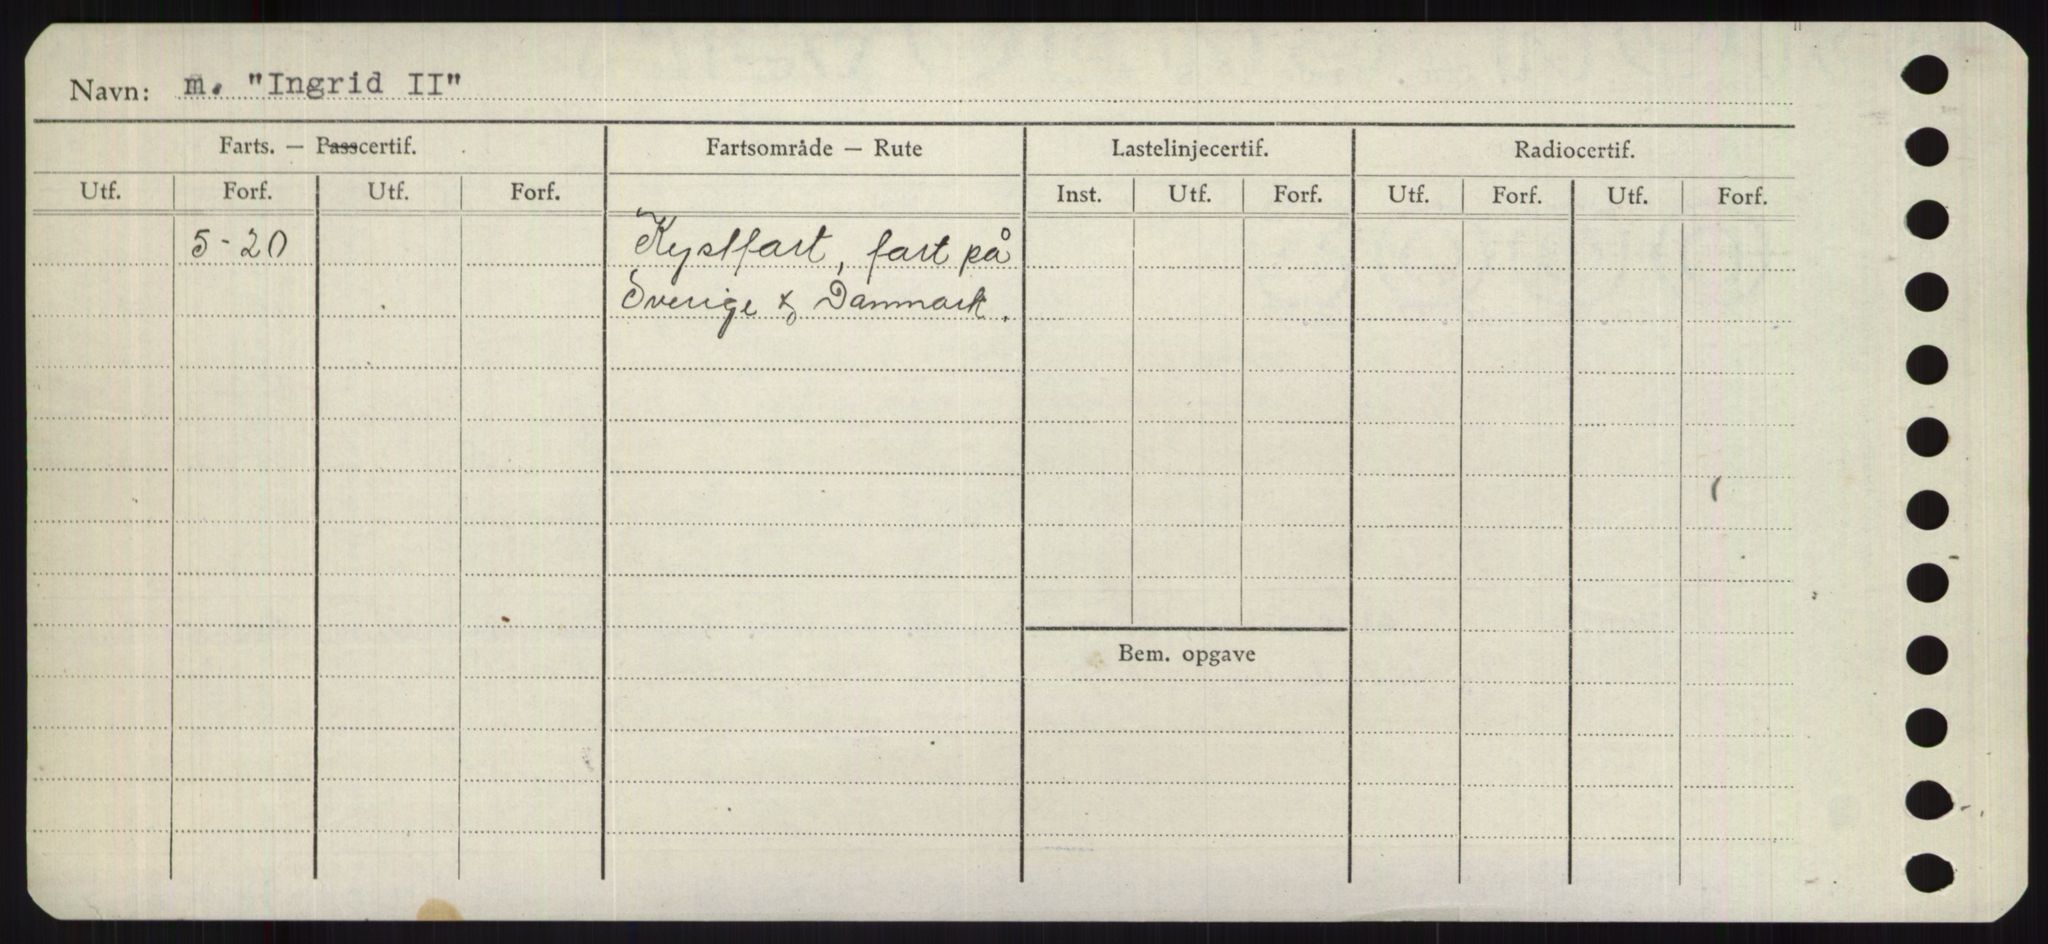 Navn: m. "Ingrid II"
Farts. — Passcertif. Fartsområde — Rute Lastelinjecertif. Radiocertif.
Utf. Forf. Utf. Forf. Inst. Utf. Forf. Utf. Forf. Utf. Forf.
5-20 Kystfart, fart på
Sverige & Danmark.
Bem. opgave